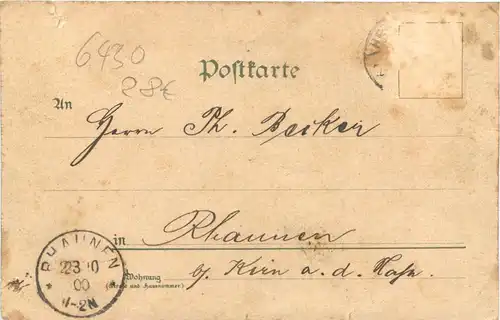 6430
28€
Postkarte
An
Herrn Th. Becker
in Rhaunen
Wohnung
(Straße und Hausnummer)
b/ Kirn a. d. Nahe
RHAUNEN
00